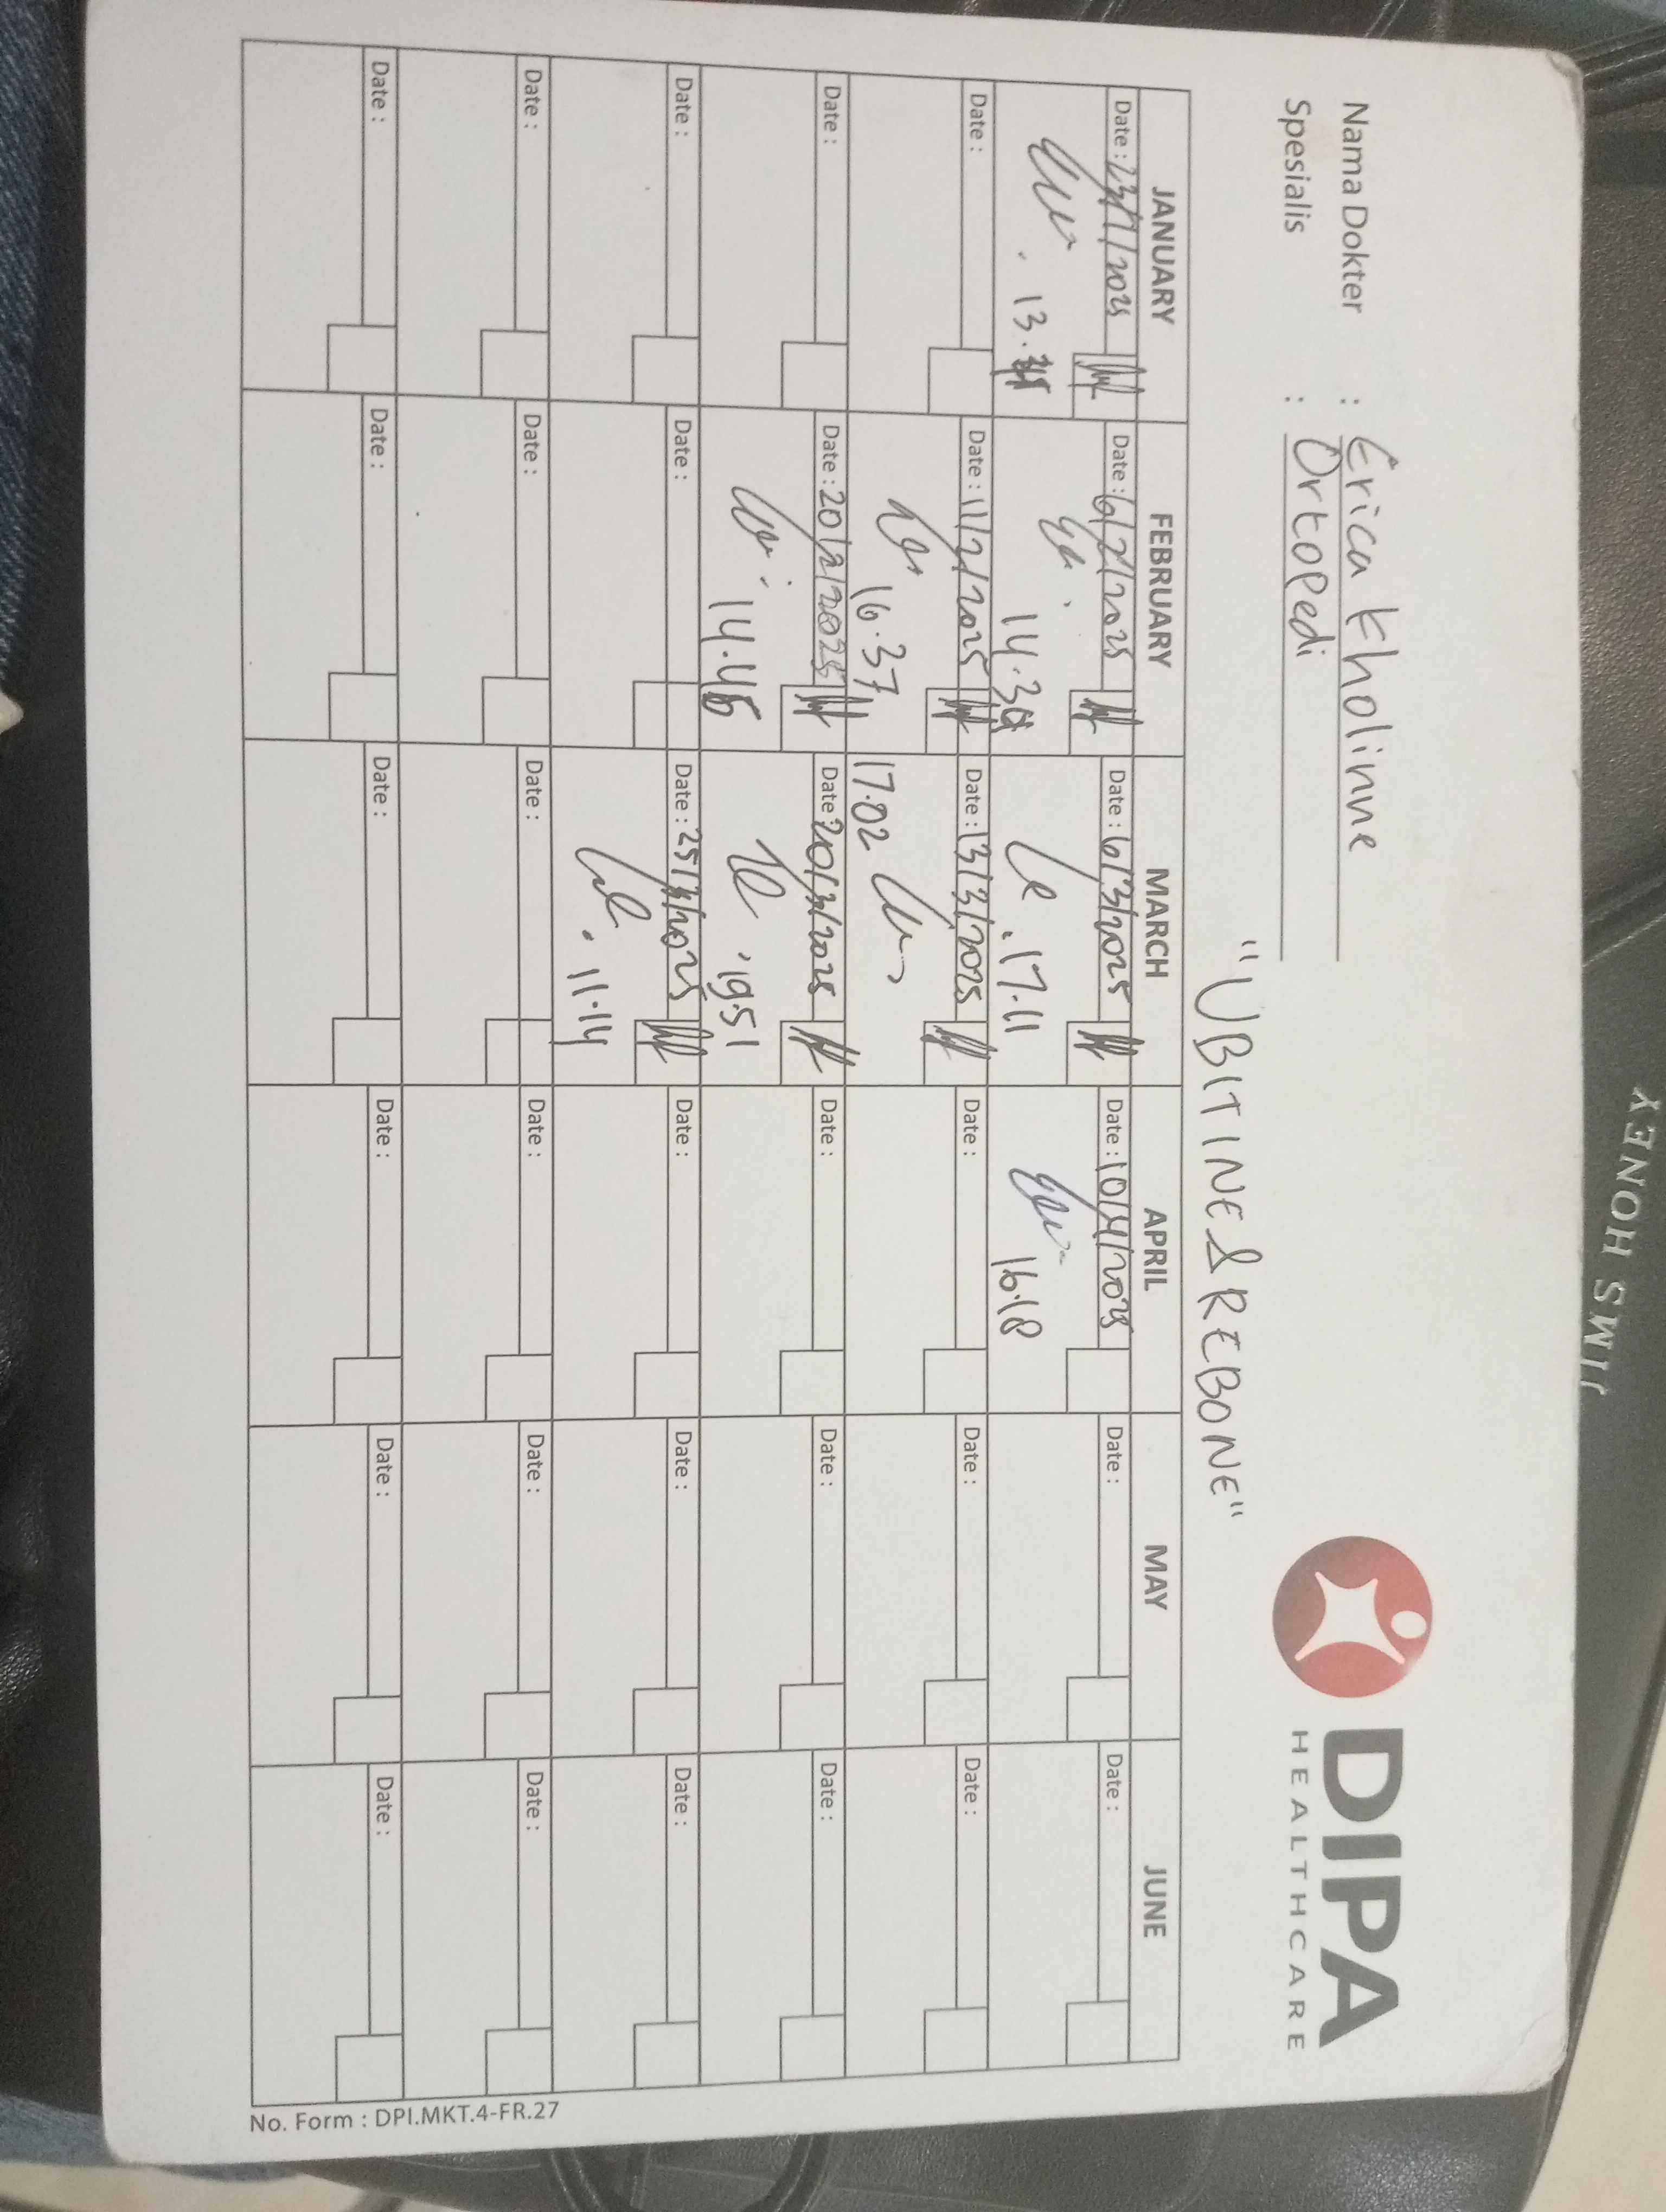 Nama Dokter : Erica Kholinne
Spesialis : Ortopedi
DIPA
HEALTHCARE
"UBITINE & REBONE"
JANUARY FEBRUARY MARCH APRIL MAY JUNE
Date : 23/1/2025 Date : 6/2/2025 Date : 6/3/2025 Date : 10/4/2025 Date : Date :
13. 14.39 17.11 16.18
Date : Date : 11/2/2025 Date : 13/3/2025 Date : Date : Date :
16.37 17.02
Date : Date : 20/2/2025 Date : 20/3/2025 Date : Date : Date :
14.45 19.51
Date : Date : Date : 25/3/2025 Date : Date : Date :
11.14
Date : Date : Date : Date : Date : Date :
Date : Date : Date : Date : Date : Date :
No. Form : DPI.MKT.4-FR.27
JIMS HONEY